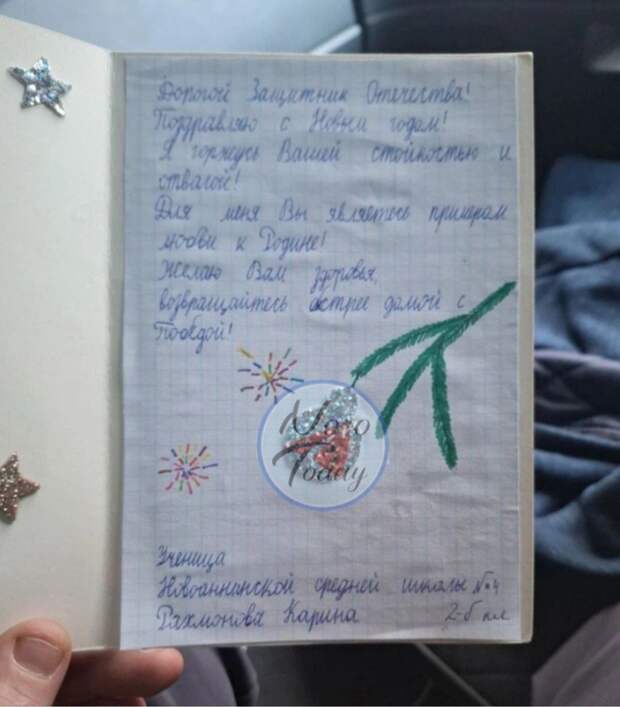 Дорогой Защитник Отечества!
Поздравляю с Новым годом!
Я горжусь Вашей стойкостью и
отвагой!
Для меня Вы являетесь примерам
любви к Родине!
Желаю Вам здоровья,
возвращайтесь быстрее домой с
Победой!
Voso
Today
Ученица
Новоаннинской средней школы №4
Рахмонова Карина 2-б кл